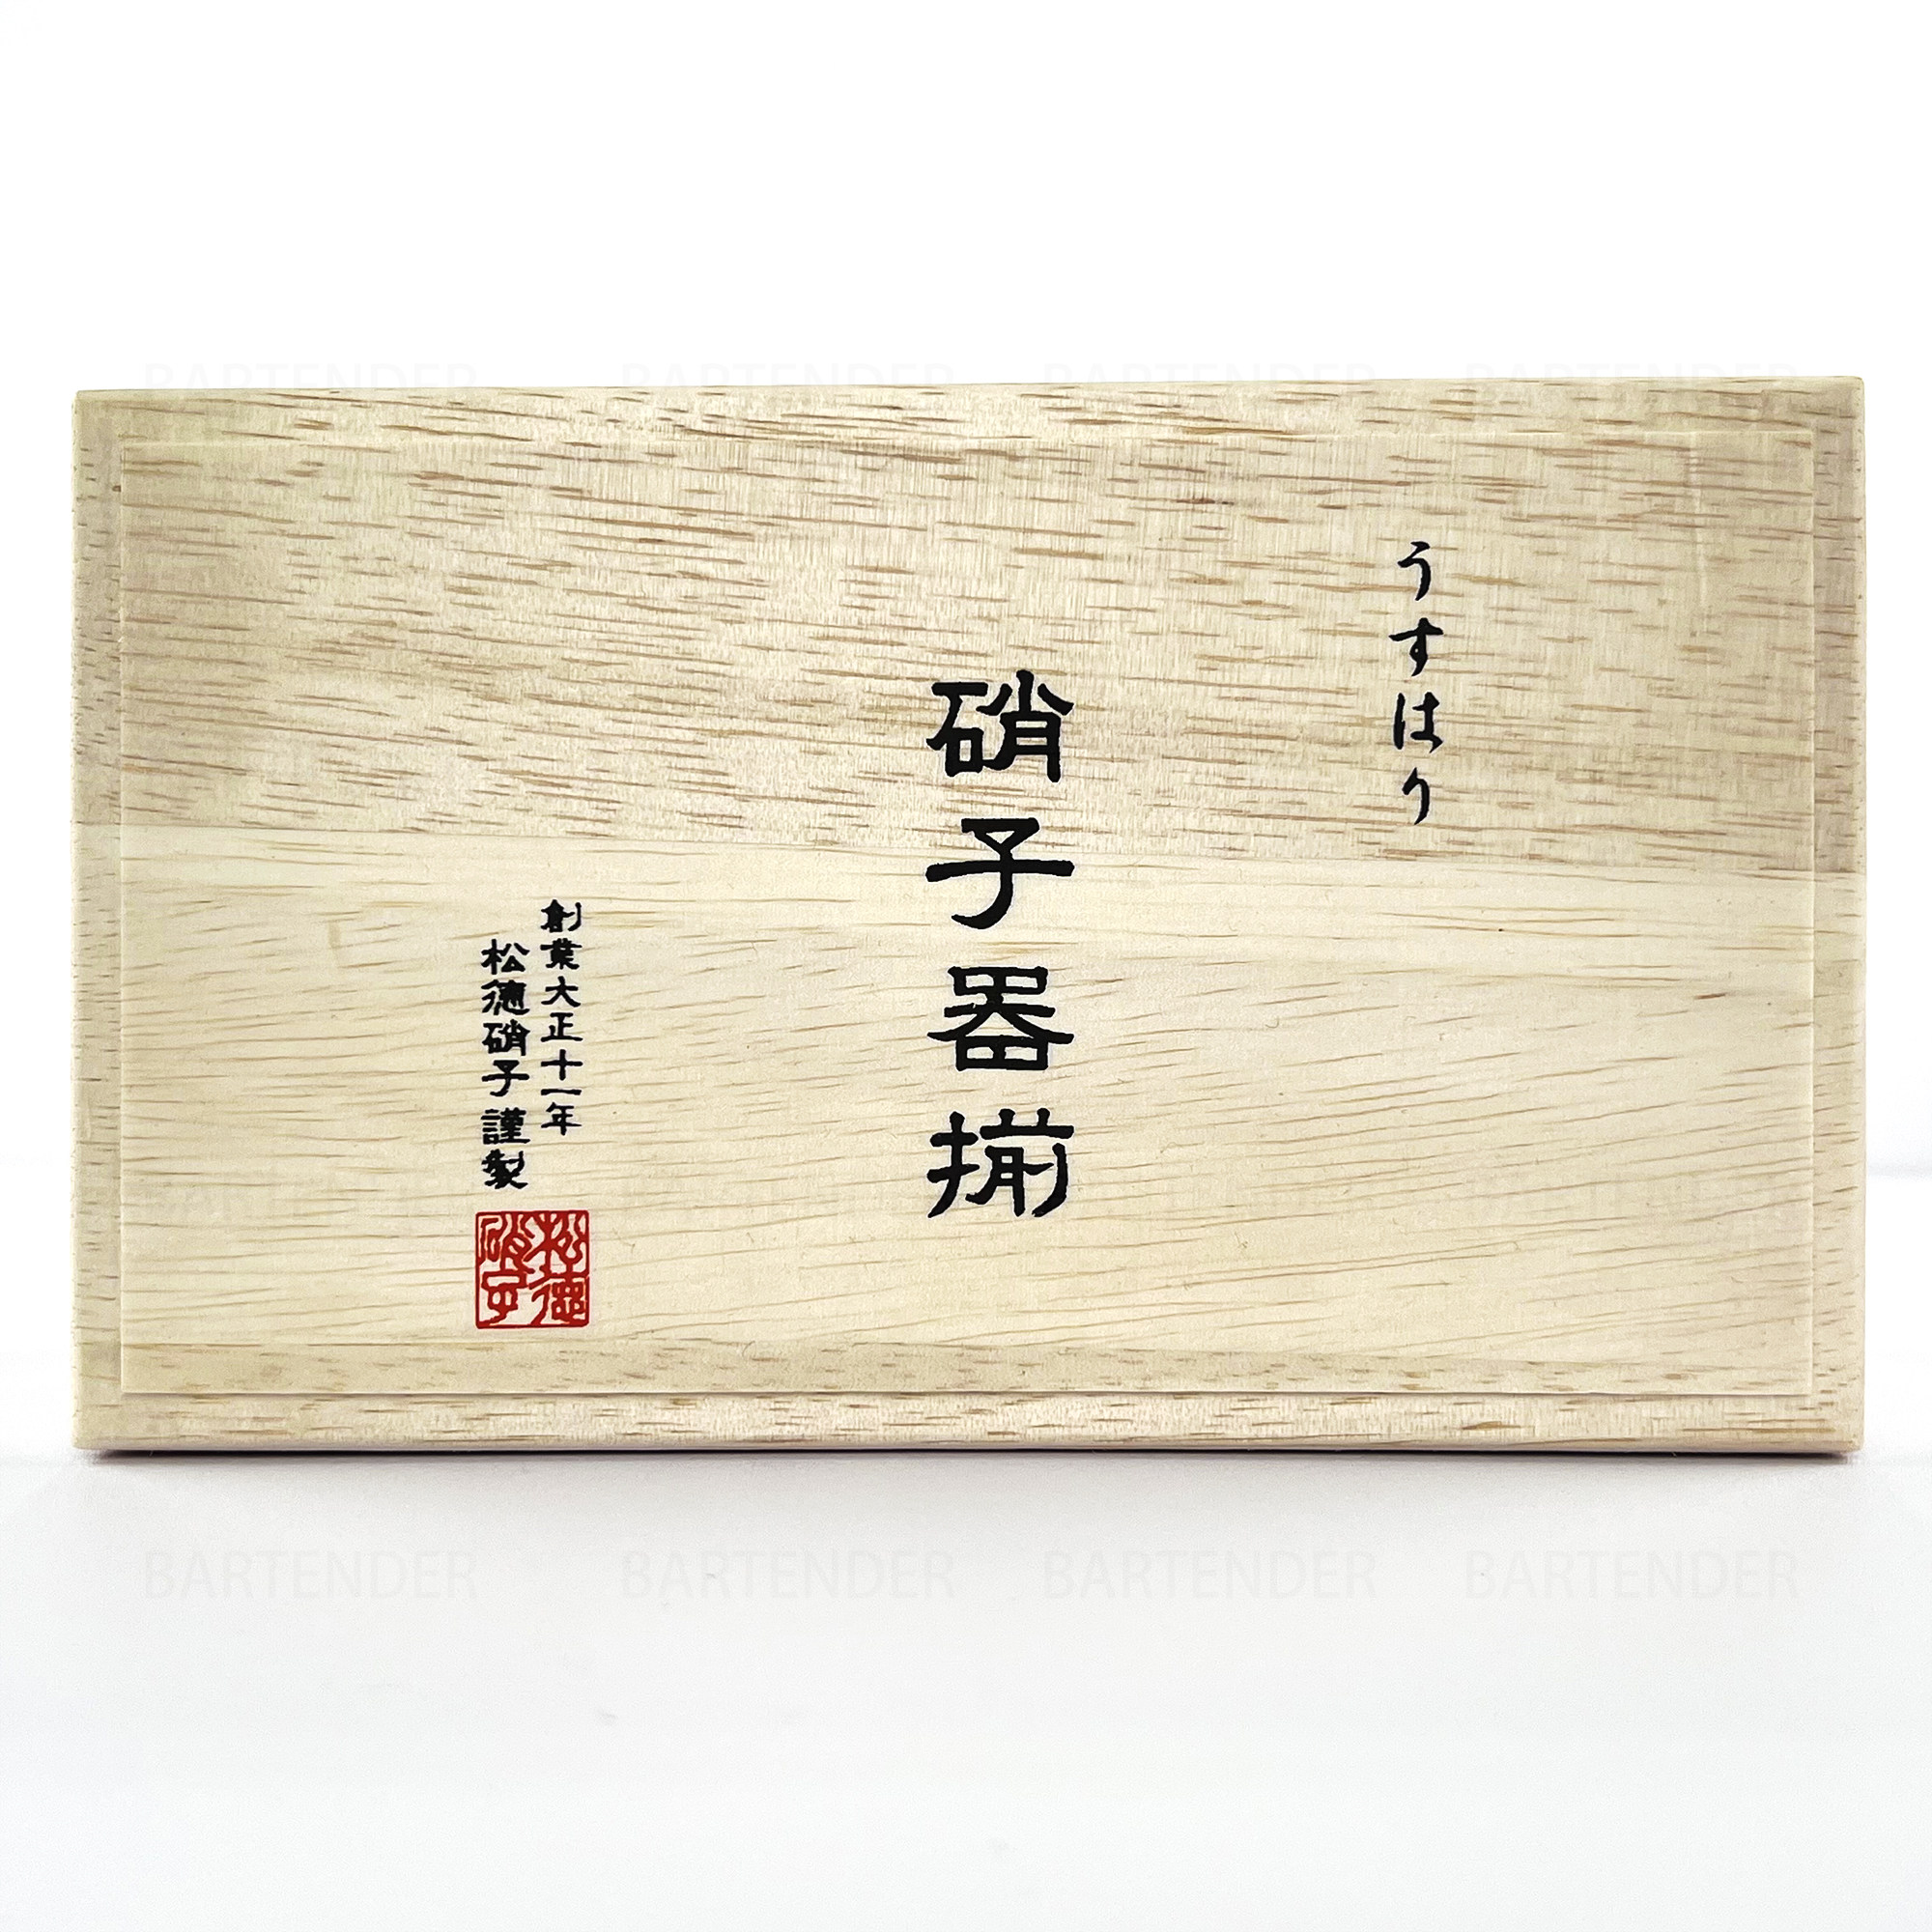 うすはり
硝子器揃
創業大正十一年
松徳硝子謹製
松徳
硝子
BARTENDER BARTENDER BARTENDER BARTENDER
BARTENDER BARTENDER BARTENDER BARTENDER